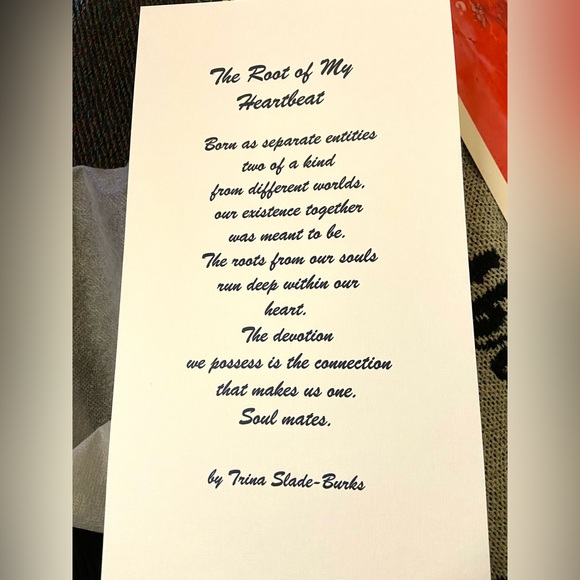 The Root of My
Heartbeat
Born as separate entities
two of a kind
from different worlds,
our existence together
was meant to be.
The roots from our souls
run deep within our
heart.
The devotion
we possess is the connection
that makes us one,
Soul mates.
by Trina Slade-Burks